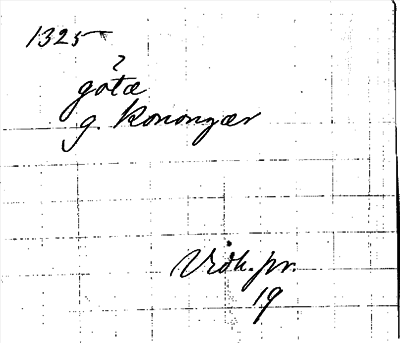 1325
?
gøtæ
g. konongær
Vidh. pr.
19